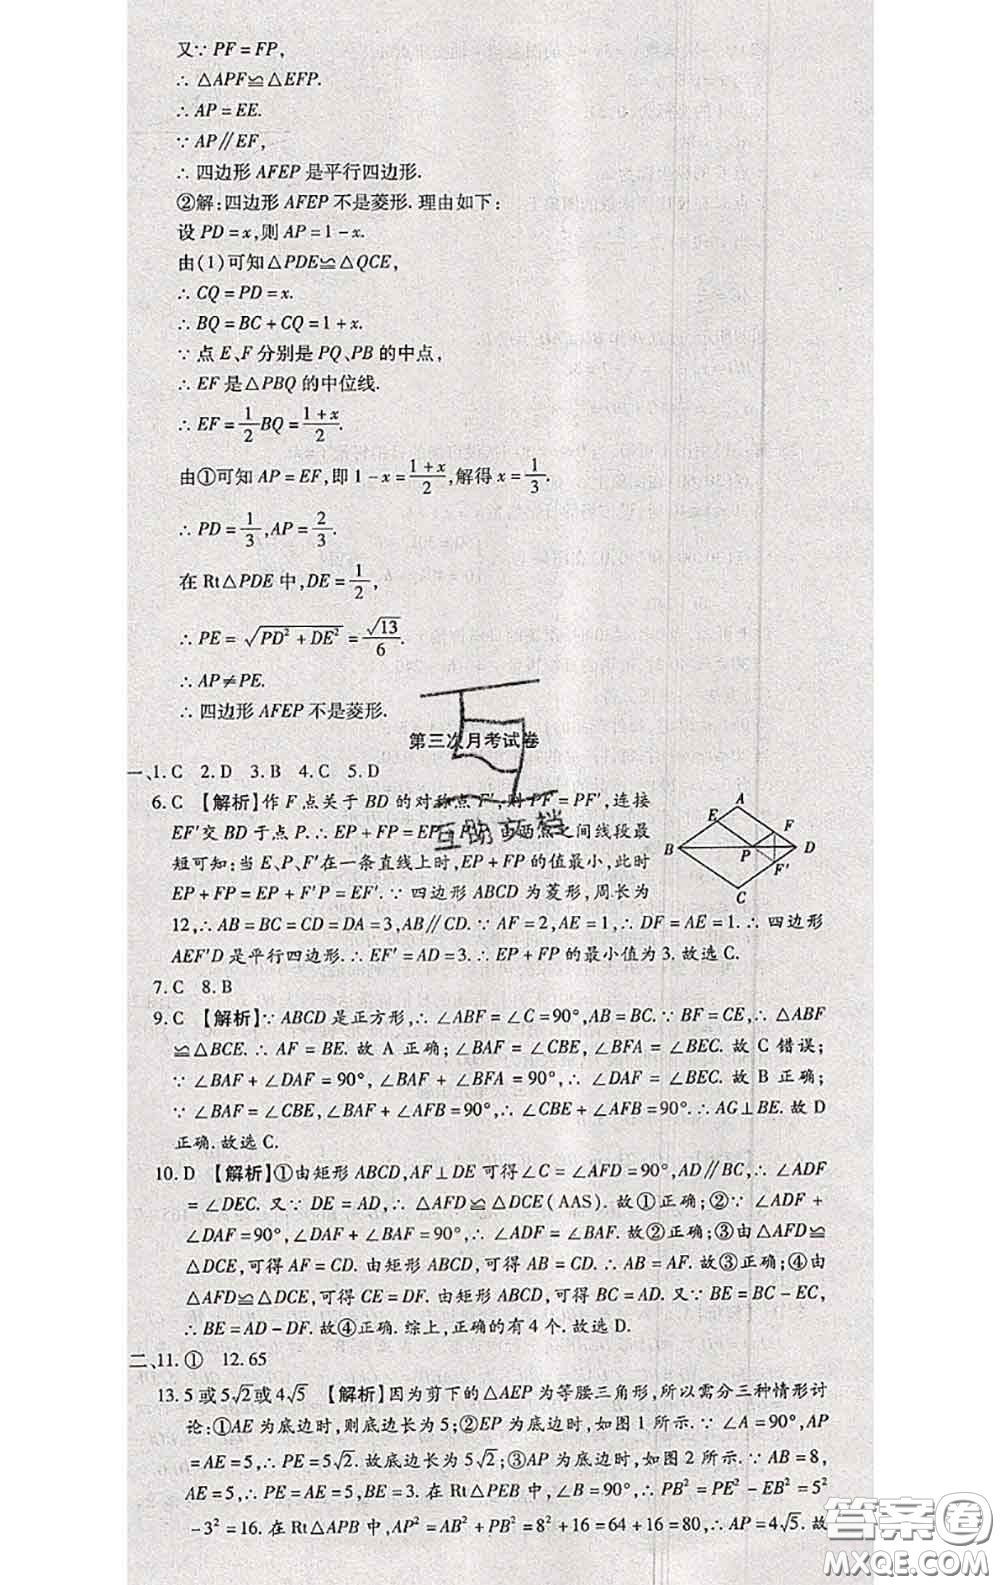 又∵ PF = FP,
∴ △APF≌△EFP.
∴ AP = EE.
∵ AP∥EF,
∴ 四边形 AFEP 是平行四边形.
②解:四边形 AFEP 不是菱形. 理由如下:
设 PD = x,则 AP = 1 - x.
由(1)可知△PDE≌△QCE,
∴ CQ = PD = x.
∴ BQ = BC + CQ = 1 + x.
∵ 点 E、F 分别是 PQ、PB 的中点,
∴ EF 是△PBQ 的中位线.
∴ EF = 1/2 BQ = (1 + x)/2.
由①可知 AP = EF,即 1 - x = (1 + x)/2,解得 x = 1/3.
∴ PD = 1/3,AP = 2/3.
在 Rt△PDE 中,DE = 1/2,
∴ PE = √(PD² + DE²) = √13/6.
∴ AP ≠ PE.
∴ 四边形 AFEP 不是菱形.
第三次月考试卷
一、1. C 2. D 3. B 4. C 5. D
6. C 【解析】作 F 点关于 BD 的对称点 F′,则 PF = PF′,连接
EF′交 BD 于点 P. ∴ EP + FP = EP + F′P. 由两点之间线段最
短可知:当 E、P、F′在一条直线上时,EP + FP 的值最小,此时
EP + FP = EP + F′P = EF′. ∵ 四边形 ABCD 为菱形,周长为
12,∴ AB = BC = CD = DA = 3,AB∥CD. ∵ AF = 2,AE = 1,∴ DF = AE = 1. ∴ 四边形
AEF′D 是平行四边形. ∴ EF′ = AD = 3. ∴ EP + FP 的最小值为 3. 故选 C.
A
E
F
B
P
D
F′
C
7. C 8. B
9. C 【解析】∵ ABCD 是正方形,∴ ∠ABF = ∠C = 90°,AB = BC. ∵ BF = CE,∴ △ABF
≌△BCE. ∴ AF = BE. 故 A 正确;∠BAF = ∠CBE,∠BFA = ∠BEC. 故 C 错误;
∵ ∠BAF + ∠DAF = 90°,∠BAF + ∠BFA = 90°,∴ ∠DAF = ∠BEC. 故 B 正确;
∵ ∠BAF = ∠CBE,∠BAF + ∠AFB = 90°,∴ ∠CBE + ∠AFB = 90°. ∴ AG⊥BE. 故 D
正确. 故选 C.
10. D 【解析】①由矩形 ABCD,AF⊥DE 可得∠C = ∠AFD = 90°,AD∥BC,∴ ∠ADF
= ∠DEC. 又∵ DE = AD,∴ △AFD≌△DCE(AAS). 故①正确;②∵ ∠ADF +
∠DAF = 90°,∠DAF + ∠BAF = 90°,∴ ∠ADF = ∠BAF. 故②正确;③由△AFD≌
△DCE,可得 AF = CD. 由矩形 ABCD,可得 AB = CD. ∴ AB = AF. 故③正确;④由
△AFD≌△DCE,可得 CE = DF. 由矩形 ABCD,可得 BC = AD. 又∵ BE = BC - EC,
∴ BE = AD - DF. 故④正确. 综上,正确的有 4 个. 故选 D.
二、11. ① 12. 65
13. 5 或 5√2 或 4√5 【解析】因为剪下的△AEP 为等腰三角形,所以需分三种情形讨
论:①AE 为底边时,则底边长为 5;②EP 为底边时,如图 1 所示. ∵ ∠A = 90°,AP
= AE = 5,∴ PE = 5√2. 故底边长为 5√2;③AP 为底边时,如图 2 所示. ∵ AB = 8,
AE = 5,∴ PE = AE = 5,BE = 3. 在 Rt△PEB 中,∠B = 90°,∴ PB² = PE² - EB² = 5²
- 3² = 16. 在 Rt△APB 中,AP² = AB² + PB² = 8² + 16 = 64 + 16 = 80,∴ AP = 4√5. 故
互助文档
答案圈
MXQE.COM